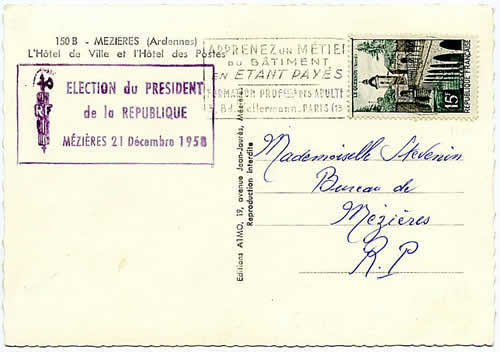 150 B - MEZIERES (Ardennes)
L'Hôtel de Ville et l'Hôtel des Postes
APPRENEZ UN MÉTIER
DU BÂTIMENT
EN ÉTANT PAYÉS
FORMATION PROFESS ADULTE
Bd. Kellermann. PARIS (13
ELECTION du PRESIDENT
de la REPUBLIQUE
MÉZIÈRES 21 Décembre 1958
LE QUESNOY
15F
POSTES
REPUBLIQUE FRANÇAISE
Editions ATMO, 19, avenue Jean-Jaurès, Mézières
Reproduction interdite
Mademoiselle Stevenin
Bureau de
Mézières
R. P